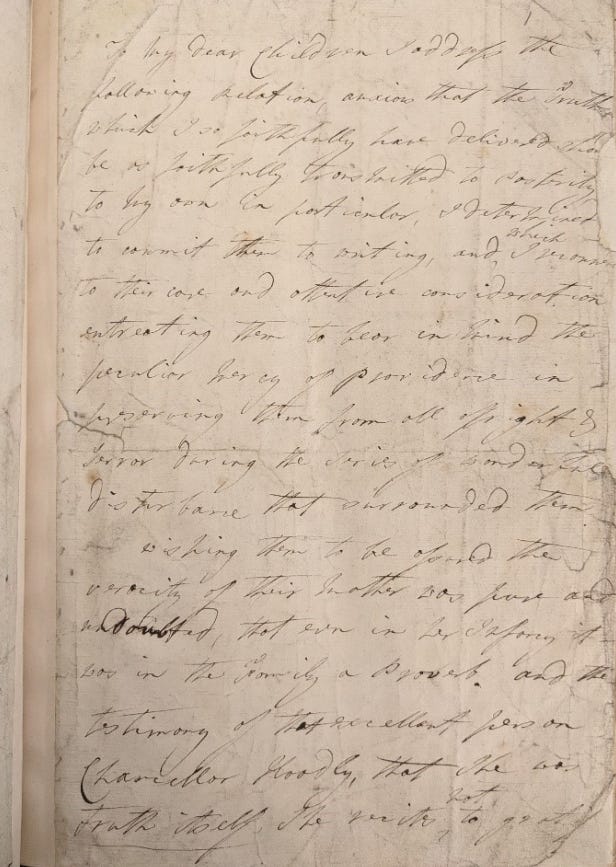 To my dear Children I address the
following relation, anxious that the Truth
which I so faithfully have delivered shou
be as faithfully transmitted to posterity
to my own in particular, I determined
to commit them to writing, and, which I recomme
to their care and attentive consideration
entreating them to bear in mind the
peculiar mercy of providence in
preserving them from all afright &
terror during the series of wonderful
disturbance that surrounded them
wishing them to be assured the
veracity of their mother was pure and
undoubted, that even in her Infancy it
was in the Family a Proverb. and the
testimony of that excellent person
Chancellor Hoadly, that she was
truth itself, She writes, not to gratify